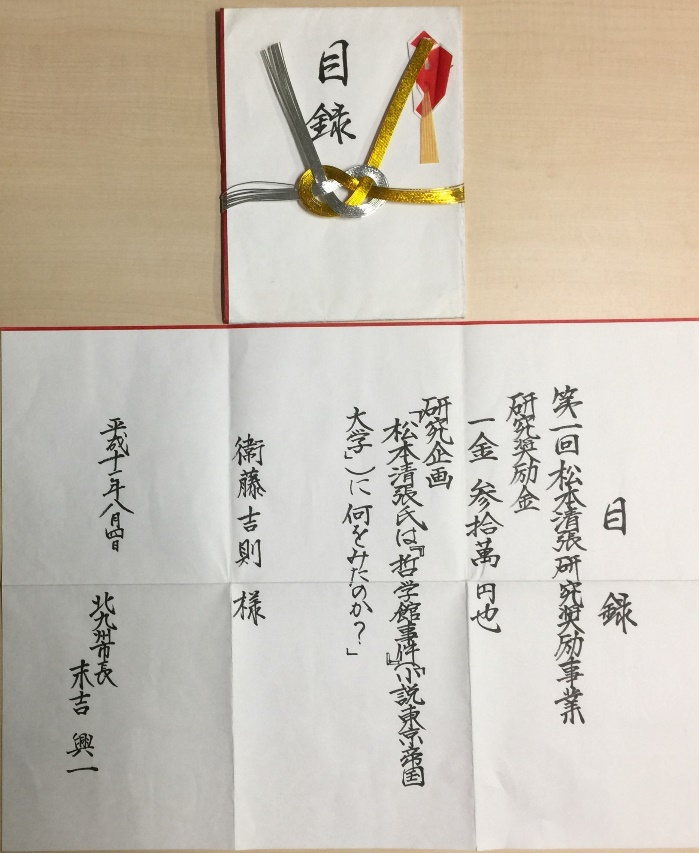 目録
目録
第一回松本清張研究奨励事業
研究奨励金
一金 参拾萬円也
研究企画
「松本清張氏は『哲学館事件』(『小説東京帝国
大学』)に何をみたのか?」
衛藤吉則 様
平成十一年八月四日
北九州市長
末吉 興一